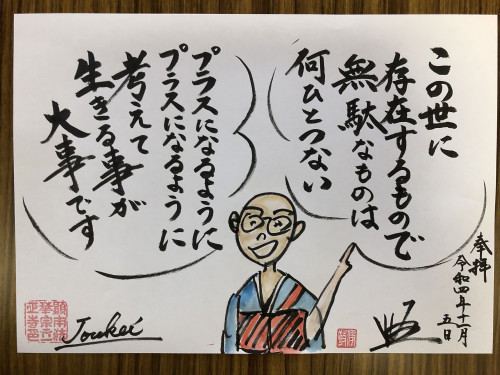 この世に
存在するもので
無駄なものは
何ひとつない
プラスになるように
プラスになるように
考えて
生きる事が
大事です
奉拝
令和四年十一月
五日
Joukei